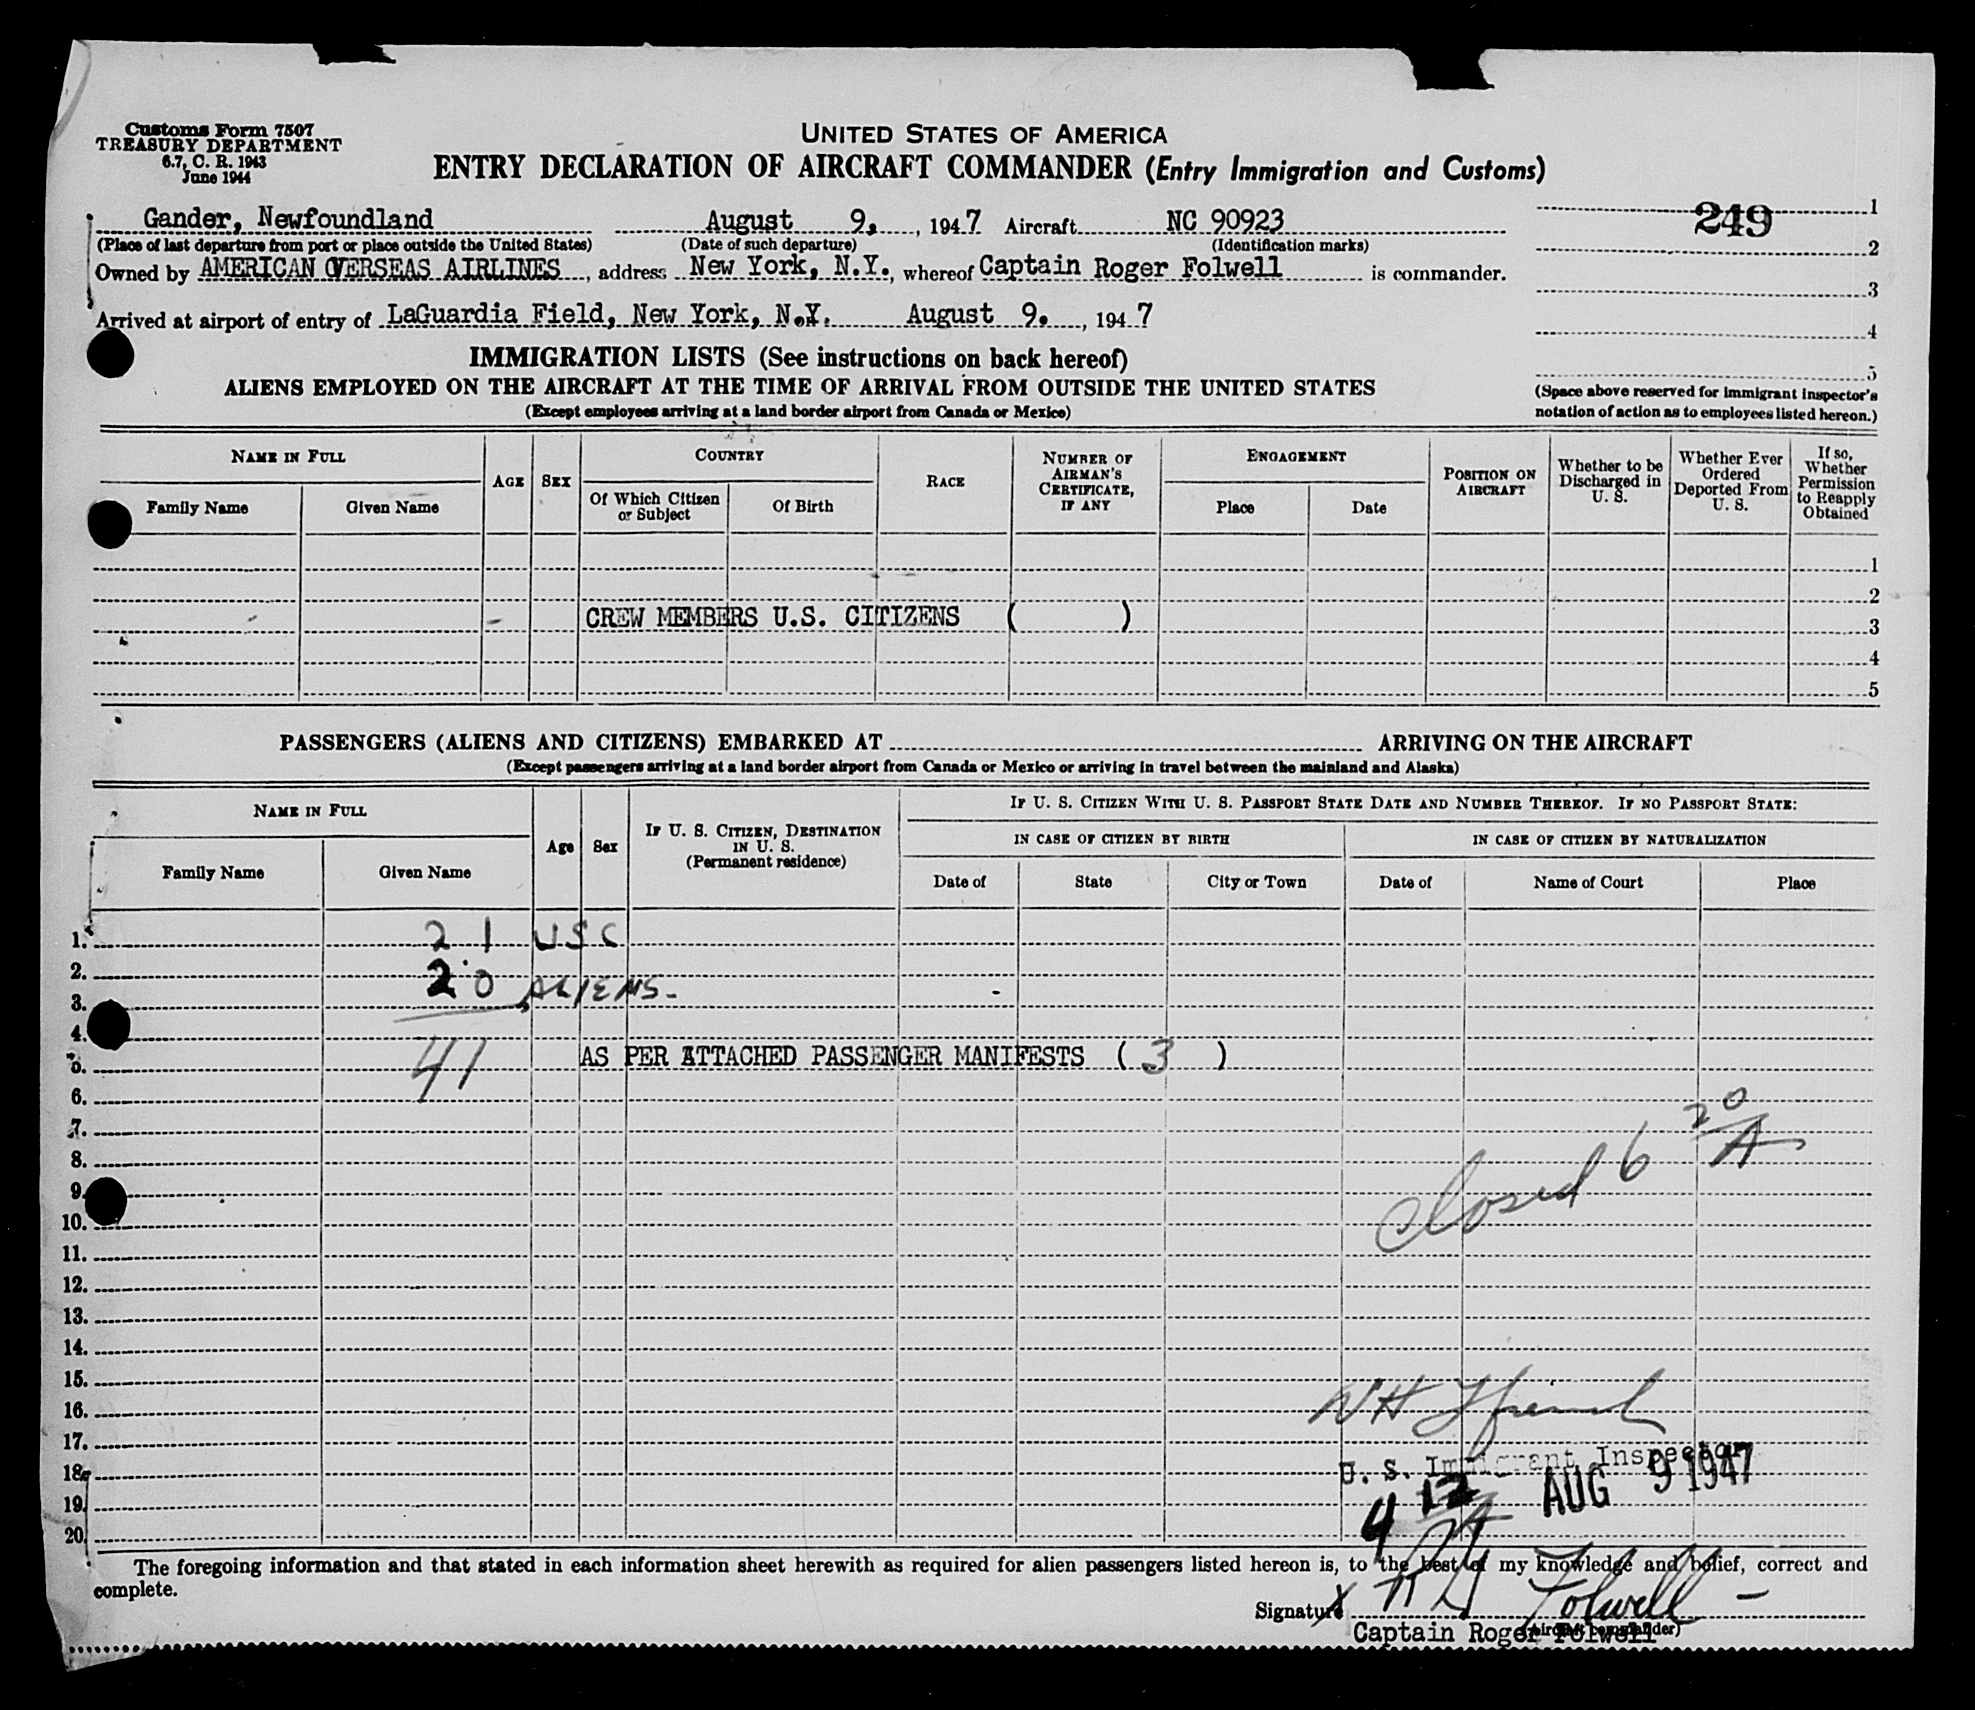 Customs Form 7507
TREASURY DEPARTMENT
6.7, C. R. 1943
June 1944
UNITED STATES OF AMERICA
ENTRY DECLARATION OF AIRCRAFT COMMANDER (Entry Immigration and Customs)
249
Gander, Newfoundland August 9, , 1947 Aircraft NC 90923
(Place of last departure from port or place outside the United States) (Date of such departure) (Identification marks)
Owned by AMERICAN OVERSEAS AIRLINES , address New York, N.Y. , whereof Captain Roger Folwell is commander.
Arrived at airport of entry of LaGuardia Field, New York, N.Y. August 9. , 1947
1
2
3
4
5
(Space above reserved for immigrant inspector's
notation of action as to employees listed hereon.)
IMMIGRATION LISTS (See instructions on back hereof)
ALIENS EMPLOYED ON THE AIRCRAFT AT THE TIME OF ARRIVAL FROM OUTSIDE THE UNITED STATES
(Except employees arriving at a land border airport from Canada or Mexico)
NAME IN FULL
Family Name Given Name
AGE SEX
COUNTRY
Of Which Citizen or Subject Of Birth
RACE
NUMBER OF AIRMAN'S CERTIFICATE, IF ANY
ENGAGEMENT
Place Date
POSITION ON AIRCRAFT
Whether to be Discharged in U. S.
Whether Ever Ordered Deported From U. S.
If so, Whether Permission to Reapply Obtained
1
2
CREW MEMBERS U.S. CITIZENS ( ) 3
4
5
PASSENGERS (ALIENS AND CITIZENS) EMBARKED AT ARRIVING ON THE AIRCRAFT
(Except passengers arriving at a land border airport from Canada or Mexico or arriving in travel between the mainland and Alaska)
NAME IN FULL
Family Name Given Name
Age Sex
IF U. S. CITIZEN, DESTINATION IN U. S.
(Permanent residence)
IF U. S. CITIZEN WITH U. S. PASSPORT STATE DATE AND NUMBER THEREOF. IF NO PASSPORT STATE:
IN CASE OF CITIZEN BY BIRTH IN CASE OF CITIZEN BY NATURALIZATION
Date of State City or Town Date of Name of Court Place
1. 21 USC
2. 20 ALIENS.
3.
4.
5. 41 AS PER ATTACHED PASSENGER MANIFESTS ( 3 )
6.
7.
8. Closed 6 20/A
9.
10.
11.
12.
13.
14.
15.
16.
17.
18. U. S. Immigrant Inspector
AUG 9 1947
19. 4 12
20.
The foregoing information and that stated in each information sheet herewith as required for alien passengers listed hereon is, to the best of my knowledge and belief, correct and
complete.
Signature X R Folwell
(Aircraft commander)
Captain Roger Folwell